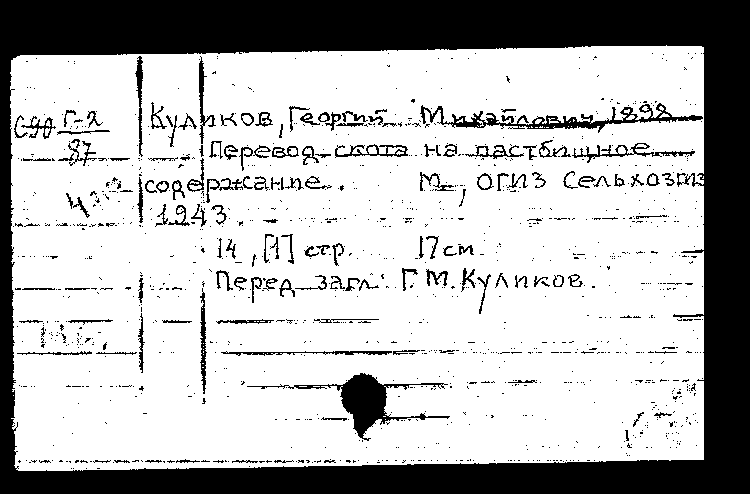 Г-2 Куликов, Георгий Михайлович, 1898
87 Перевод скота на пастбищное
содержание. М., ОГИЗ Сельхозгиз
1943.
14, [1] стр. 17 см
Перед загл: Г.М.Куликов.